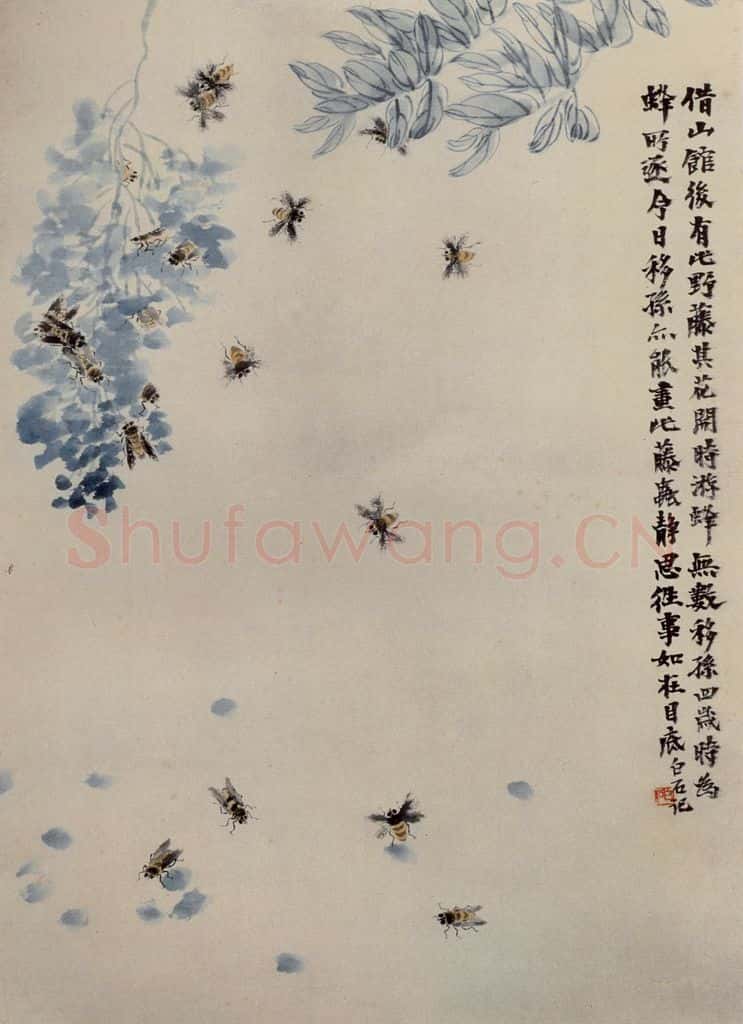 借山館後有此野藤其花開時游蜂無數移孫四歲時為
蜂所逐今日移孫亦能畫此藤蟲静思往事如在目底
白石記
Shufawang.CN